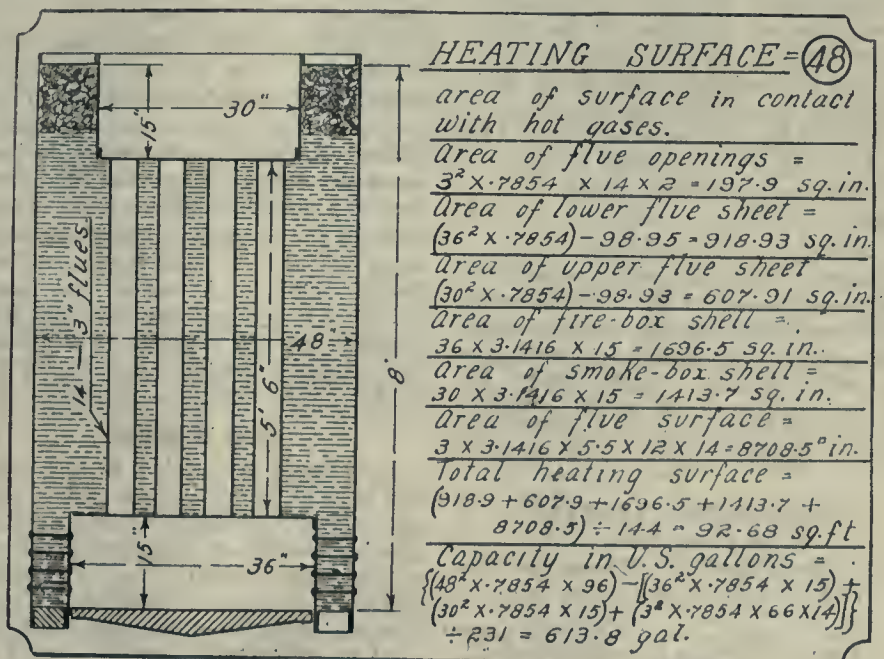 HEATING SURFACE= 48
area of surface in contact
with hot gases.
Area of flue openings =
3² X .7854 X 14 X 2 = 197.9 sq. in.
Area of lower flue sheet =
(36² X .7854) – 98.95 = 918.93 sq. in.
Area of upper flue sheet
(30² X .7854) – 98.93 = 607.91 sq. in.
Area of fire-box shell =
36 X 3.1416 X 15 = 1696.5 sq. in.
Area of smoke-box shell =
30 X 3.1416 X 15 = 1413.7 sq. in.
Area of flue surface =
3 X 3.1416 X 5.5 X 12 X 14 = 8708.5" in.
Total heating surface =
(918.9 + 607.9 + 1696.5 + 1413.7 +
8708.5) ÷ 144 = 92.68 sq. ft
Capacity in U.S. gallons =
{(48² X .7854 X 96) – [(36² X .7854 X 15) +
(30² X .7854 X 15) + (3² X .7854 X 66 X 14)]}
÷ 231 = 613.8 gal.
15"
30"
14 — 3" flues
48
5' 6"
8'
15"
36"